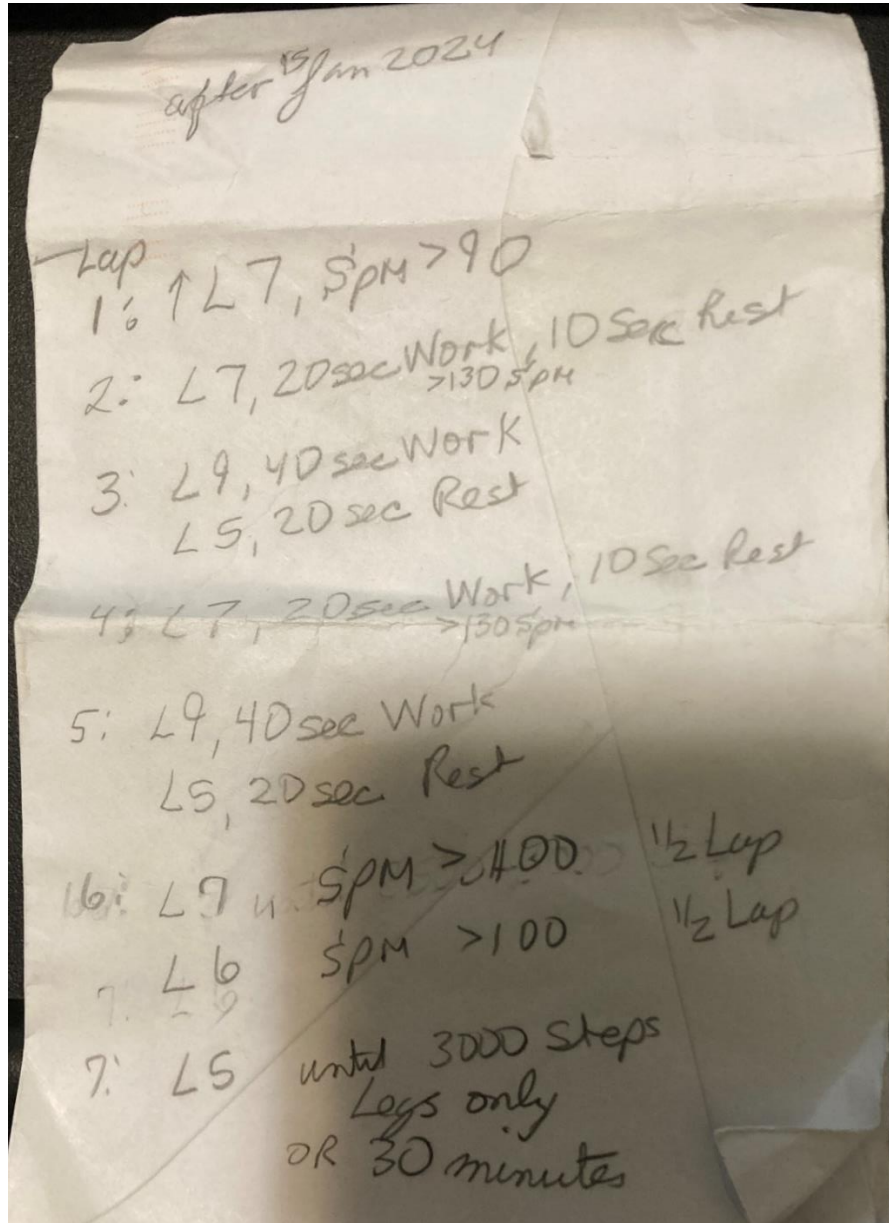 after 15 Jan 2024
Lap
1: ↑L7, SPM >90
2: L7, 20sec Work, 10 Sec Rest
>130 SPM
3: L9, 40 sec Work
L5, 20 sec Rest
4: L7, 20sec Work, 10 Sec Rest
>130 SPM
5: L9, 40 sec Work
L5, 20 sec Rest
6: L7 SPM > 100 1/2 Lap
L6 SPM >100 1/2 Lap
7: L5 until 3000 Steps
Legs only
OR 30 minutes